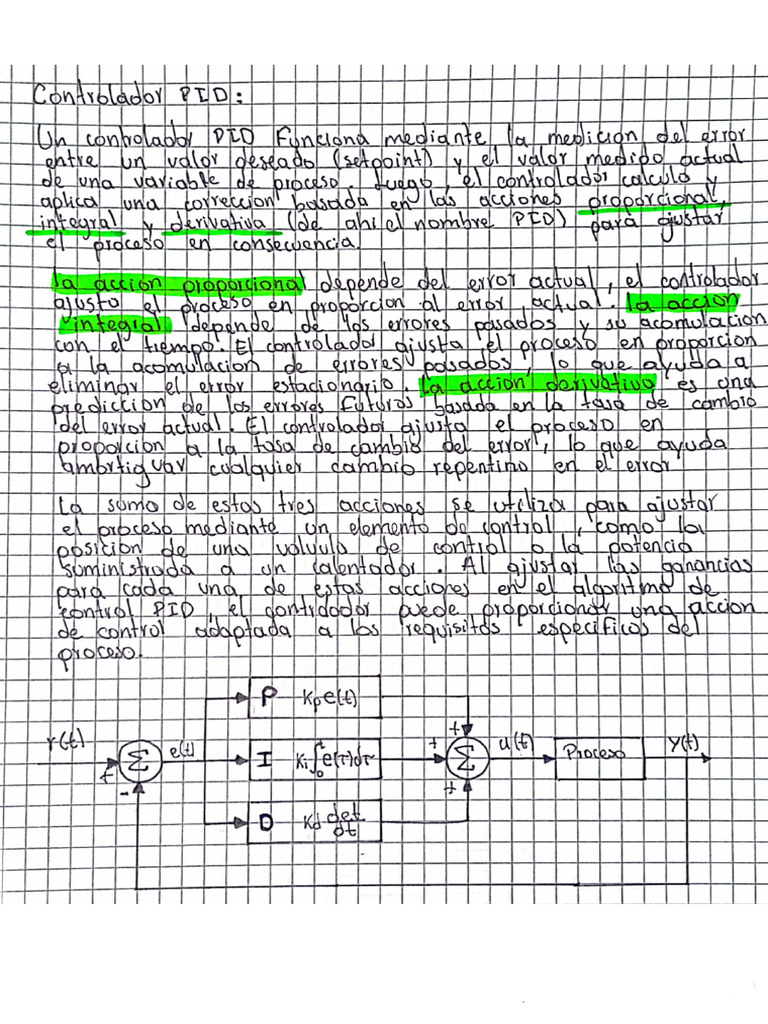 Controlador PID:
Un controlador PID Funciona mediante la medicion del error
entre un valor deseado (setpoint) y el valor medido actual
de una variable de proceso. Luego, el controlador calcula y
aplica una correccion basada en las acciones proporcional,
integral y derivativa (de ahi el nombre PID) para ajustar
el proceso en consecuencia.
La accion proporcional depende del error actual, el controlador
ajusto el proceso en proporcion al error actual. la accion
integral depende de los errores pasados y su acomulacion
con el tiempo. El controlador ajusta el proceso en proporcion
a la acomulacion de errores pasados, lo que ayuda a
eliminar el error estacionario. La accion derivativa es una
prediccion de los errores futuros basada en la tasa de cambio
del error actual. El controlador ajusta el proceso en
proporcion a la tasa de cambio del error, lo que ayuda
ambrtiguar cualquier cambio repentino en el error
La suma de estas tres acciones se utiliza para ajustar
el proceso mediante un elemento de control, como la
posicion de una valvula de control o la potencia
suministrada a un calentador. Al ajustar las ganancias
para cada una de estas acciones en el algoritmo de
control PID, el contrdador puede proporcionar una accion
de control adaptada a los requisitos especificos del
proceso.
P Kpe(t)
r(t) + - Σ e(t) I Ki∫₀ᵗe(τ)dτ + + + Σ u(t) Proceso y(t)
D Kd det/dt